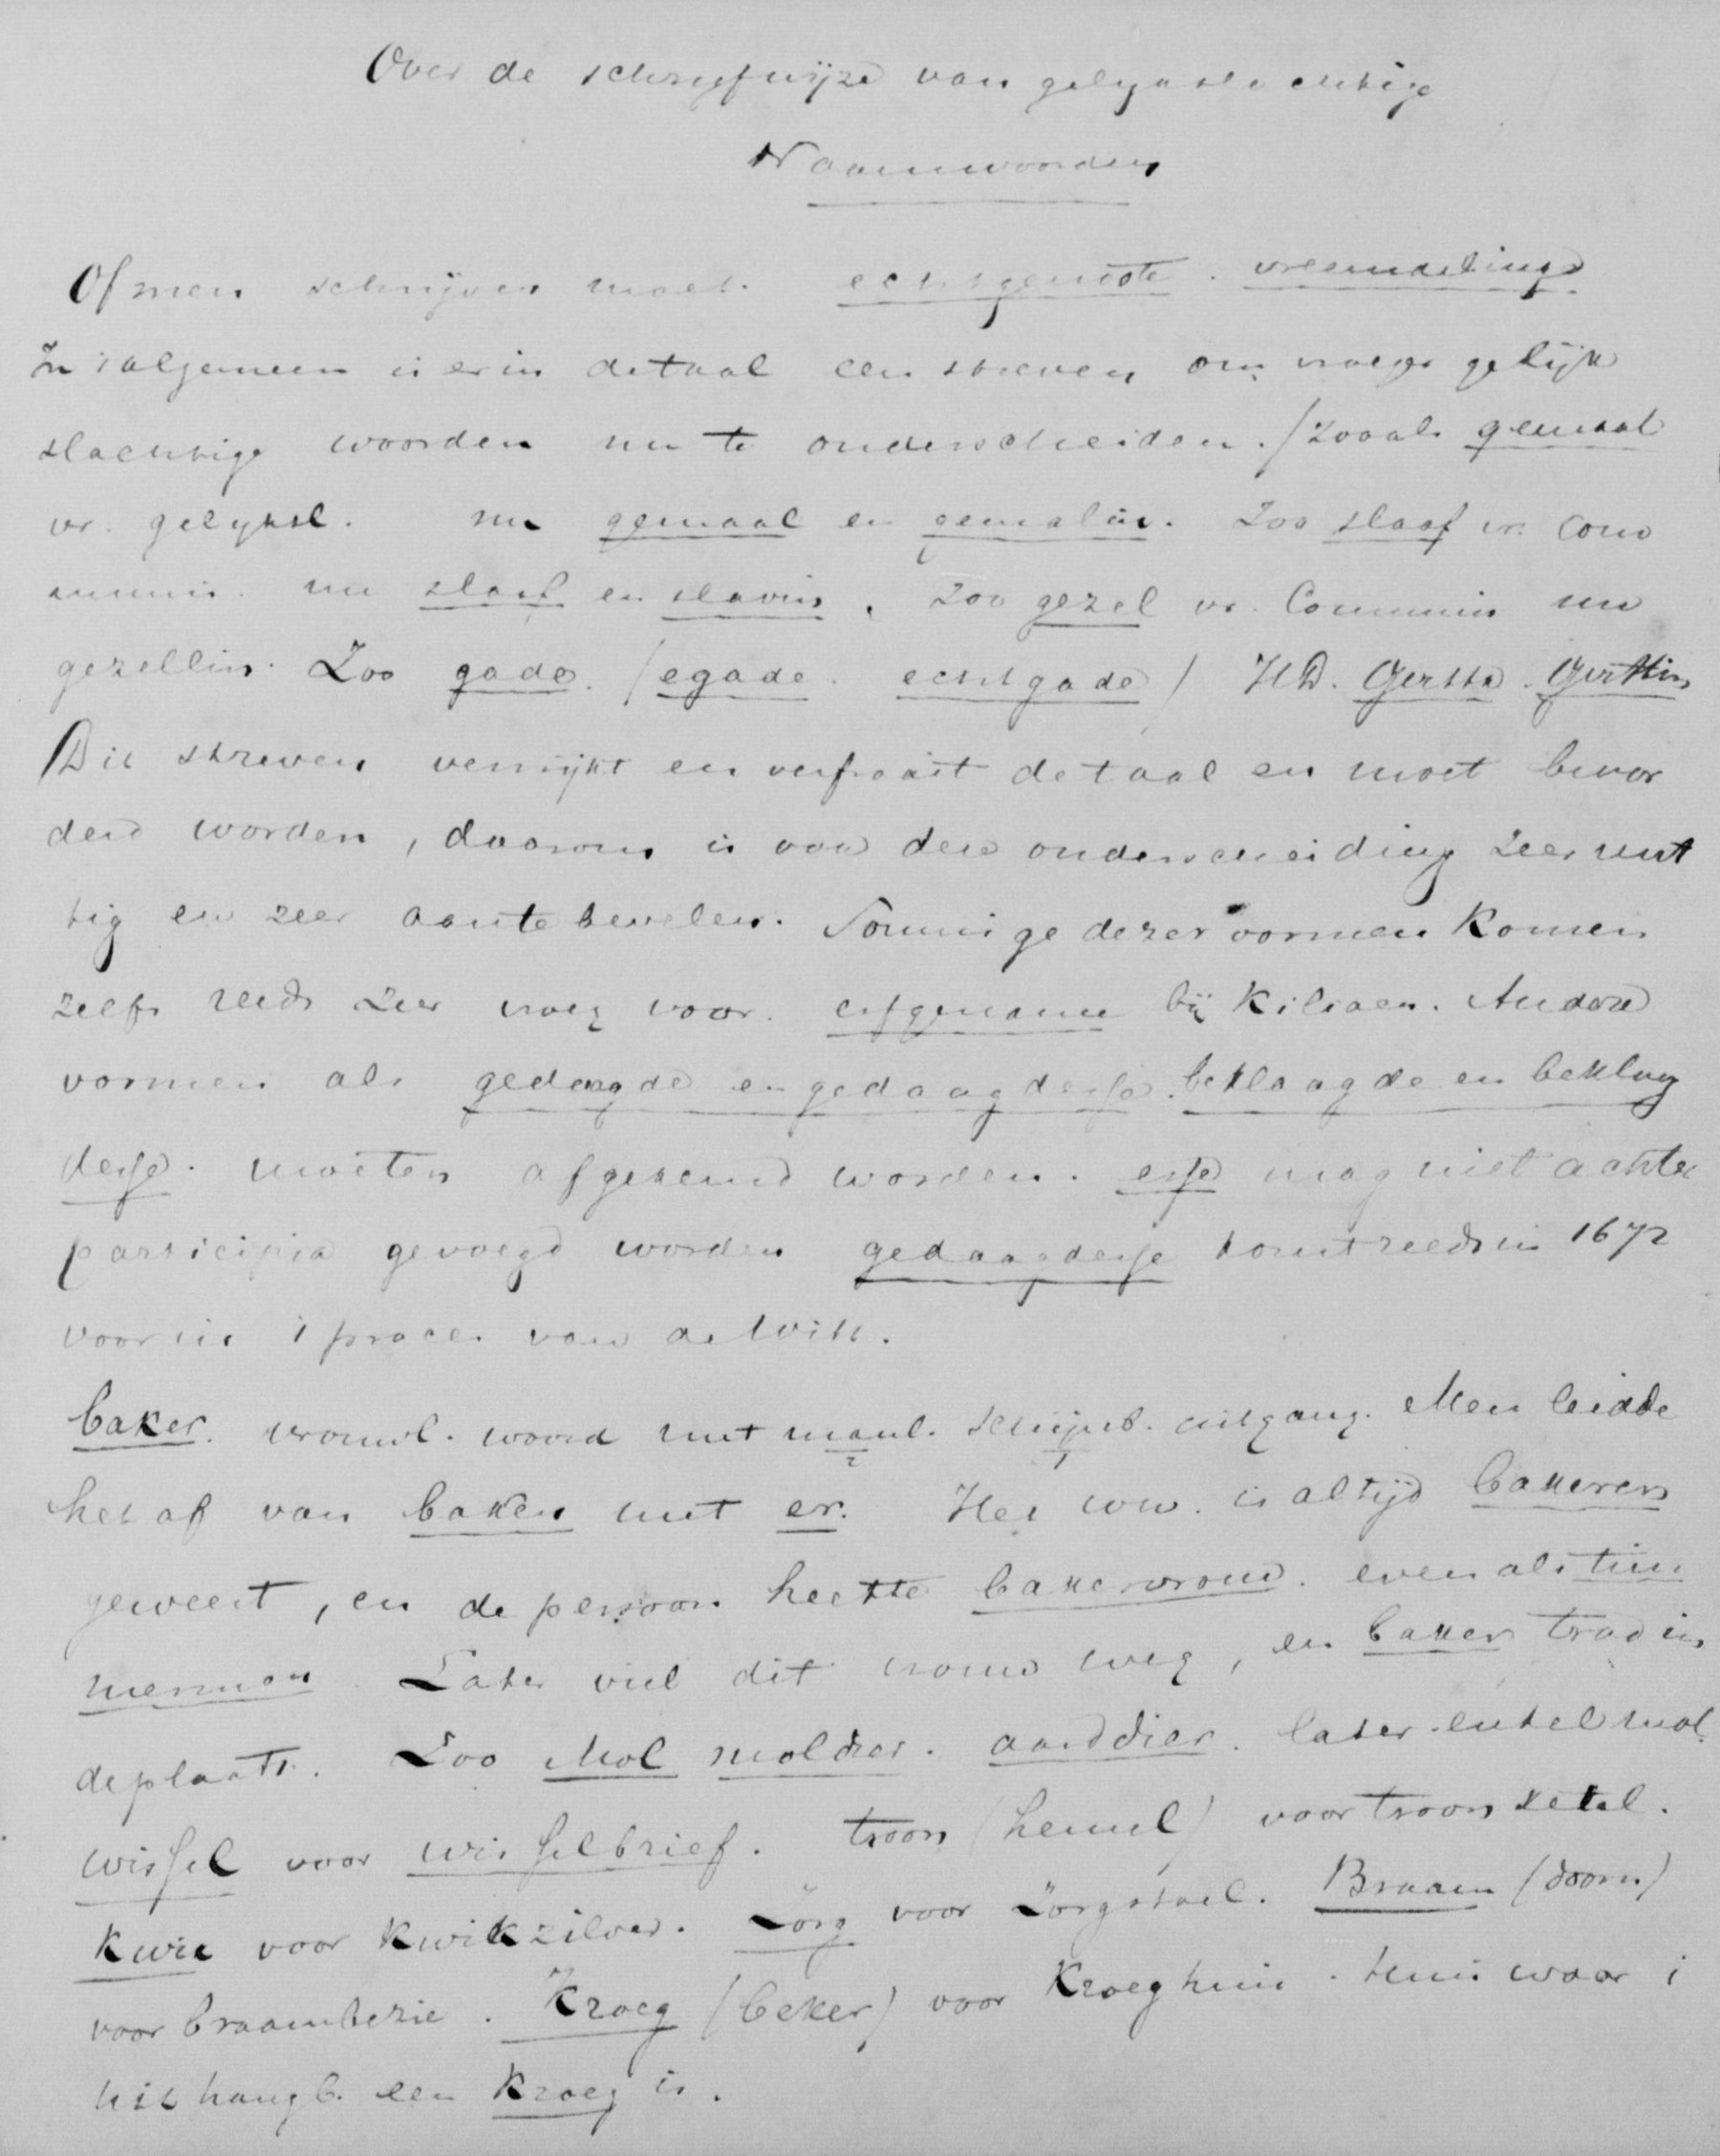 Over de schryfwijze van gelykslachtige
Naamwoorden
Of men schrijven moet. echtgenoote. vreemdelinge
In 't algemeen is er in de taal een streven om vroeger gelijk
slachtige woorden nu te onderscheiden. / zooals gemaal
vr. gelyksl. nu gemaal en gemalin. Zoo slaaf vr. Com
munis. nu slaaf en slavin. Zoo gezel vr. Communis nu
gezellin. Zoo gade. (egade. echtgade) HD. Gatte. Gattin
Dit streven verrijkt en verfraait de taal en moet bevor
derd worden, daarom is ook deze onderscheiding zeer nut
tig en zeer aantebevelen. Sommige dezer vormen komen
zelfs reeds zeer vroeg voor. erfgename bij Kiliaen. Andere
vormen als gedaagde en gedaagdesse. beklaagde en beklaag
desse. moeten afgekeurd worden. esse mag niet achter
participia gevoegd worden gedaagdesse komt reeds in 1672
voor in 't proces van de Witt.
baker. vrouwl. woord met manl. schijnb. uitgang. Men leidde
het af van baken met er. Het ww. is altijd bakeren
geweest, en de persoon heette bakervrouw. even als tim
merman. Later viel dit vrouw weg, en baker trad in
de plaats. Zoo Mol moldier. aarddier. later enkel mol.
wissel voor wisselbrief. troon (hemel) voor troonzetel.
Kwik voor Kwikzilver. Zorg voor Zorgstoel. Braam (doorn)
voor braambezie. Kroeg (beker) voor Kroeghuis. Huis waar 't
uithangb. een Kroeg is.